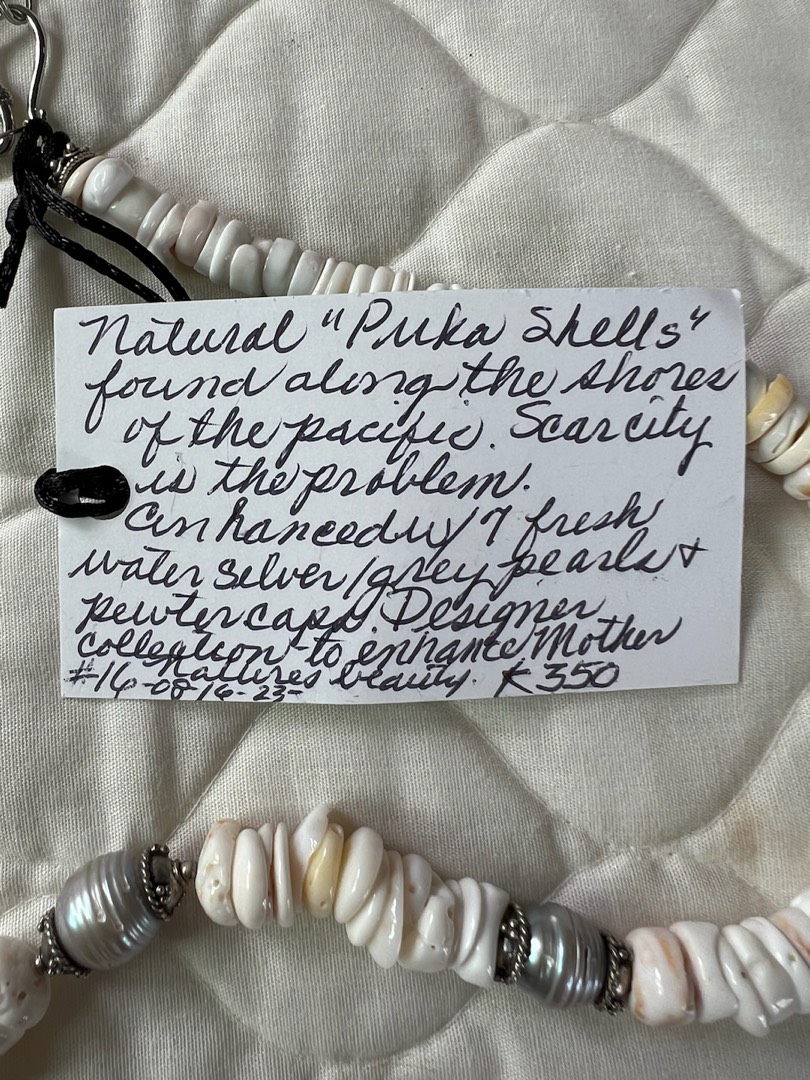 Natural "Puka Shells"
found along the shores
of the pacific. Scarcity
is the problem.
Enhanced w/ 7 fresh
water silver/grey pearls +
pewter caps. Designer
collection to enhance Mother
Natures beauty. K350
#16-08-16-23-